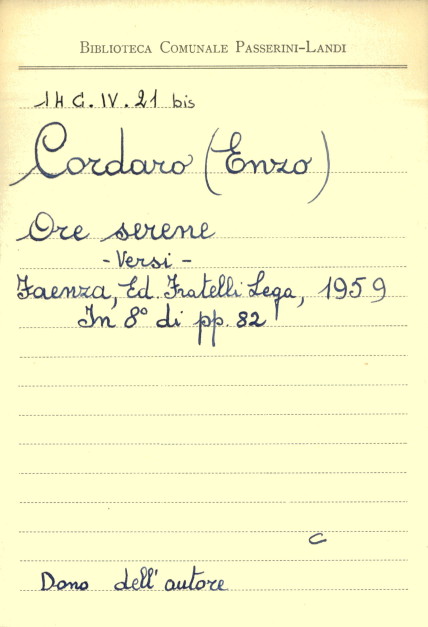 BIBLIOTECA COMUNALE PASSERINI-LANDI
14 C. IV. 21 bis
Cordaro (Enzo)
Ore serene
- Versi -
Faenza, Ed. Fratelli Lega, 1959
In 8° di pp. 82
C
Dono dell'autore